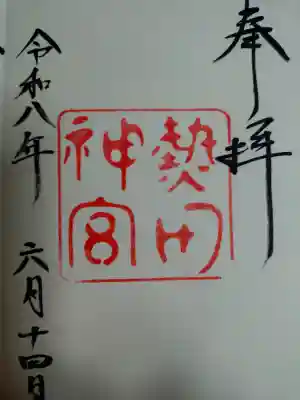 奉拝
熱田
神宮
令和八年 六月十四日